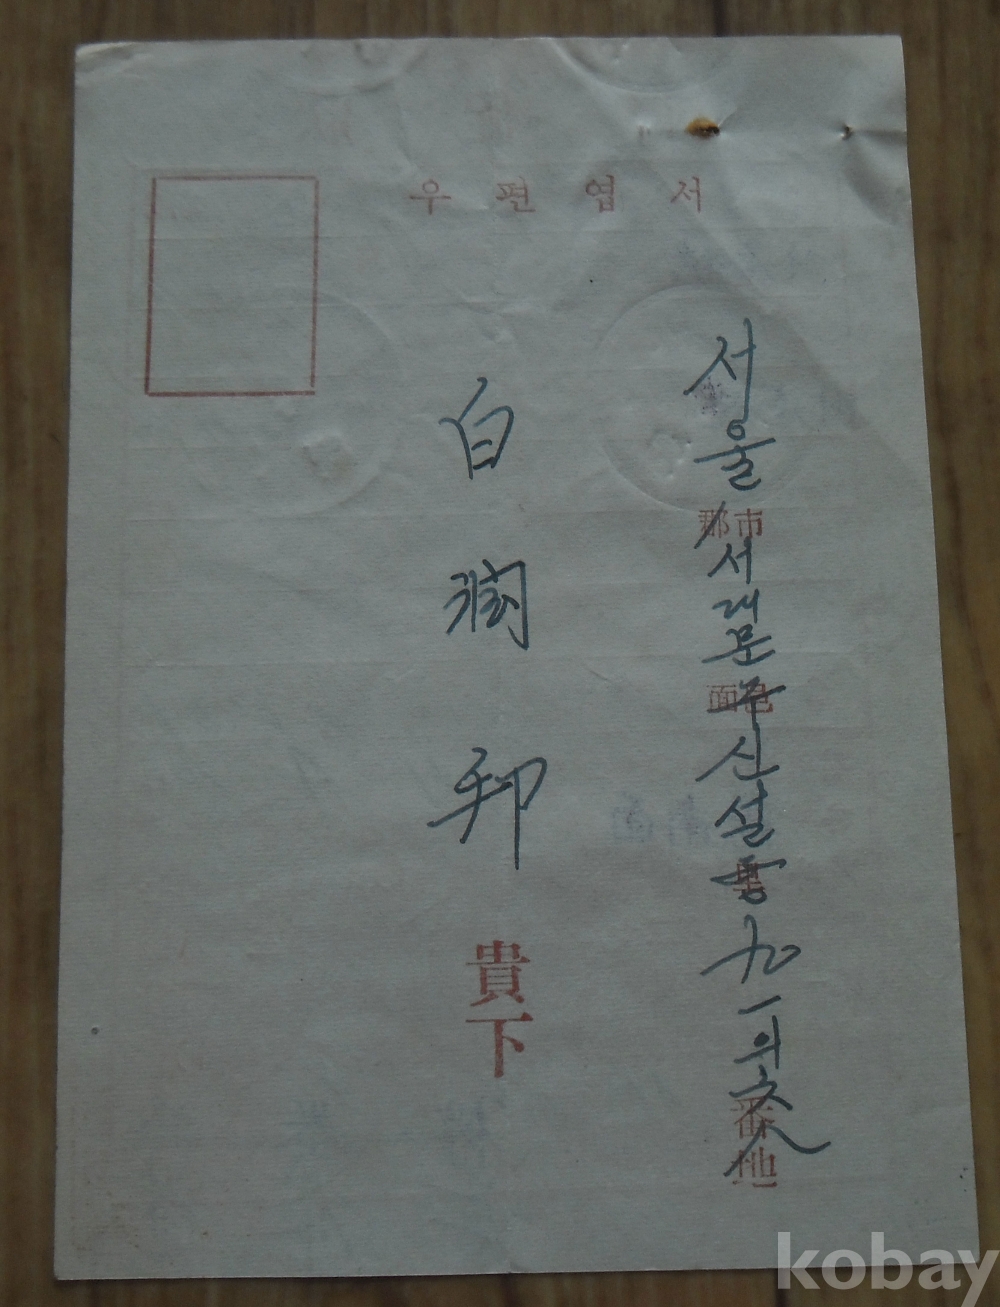 우편엽서
서울 郡市 서대문구 面邑 신설동 里 九一의 六 番地
白潤邦 貴下
kobay